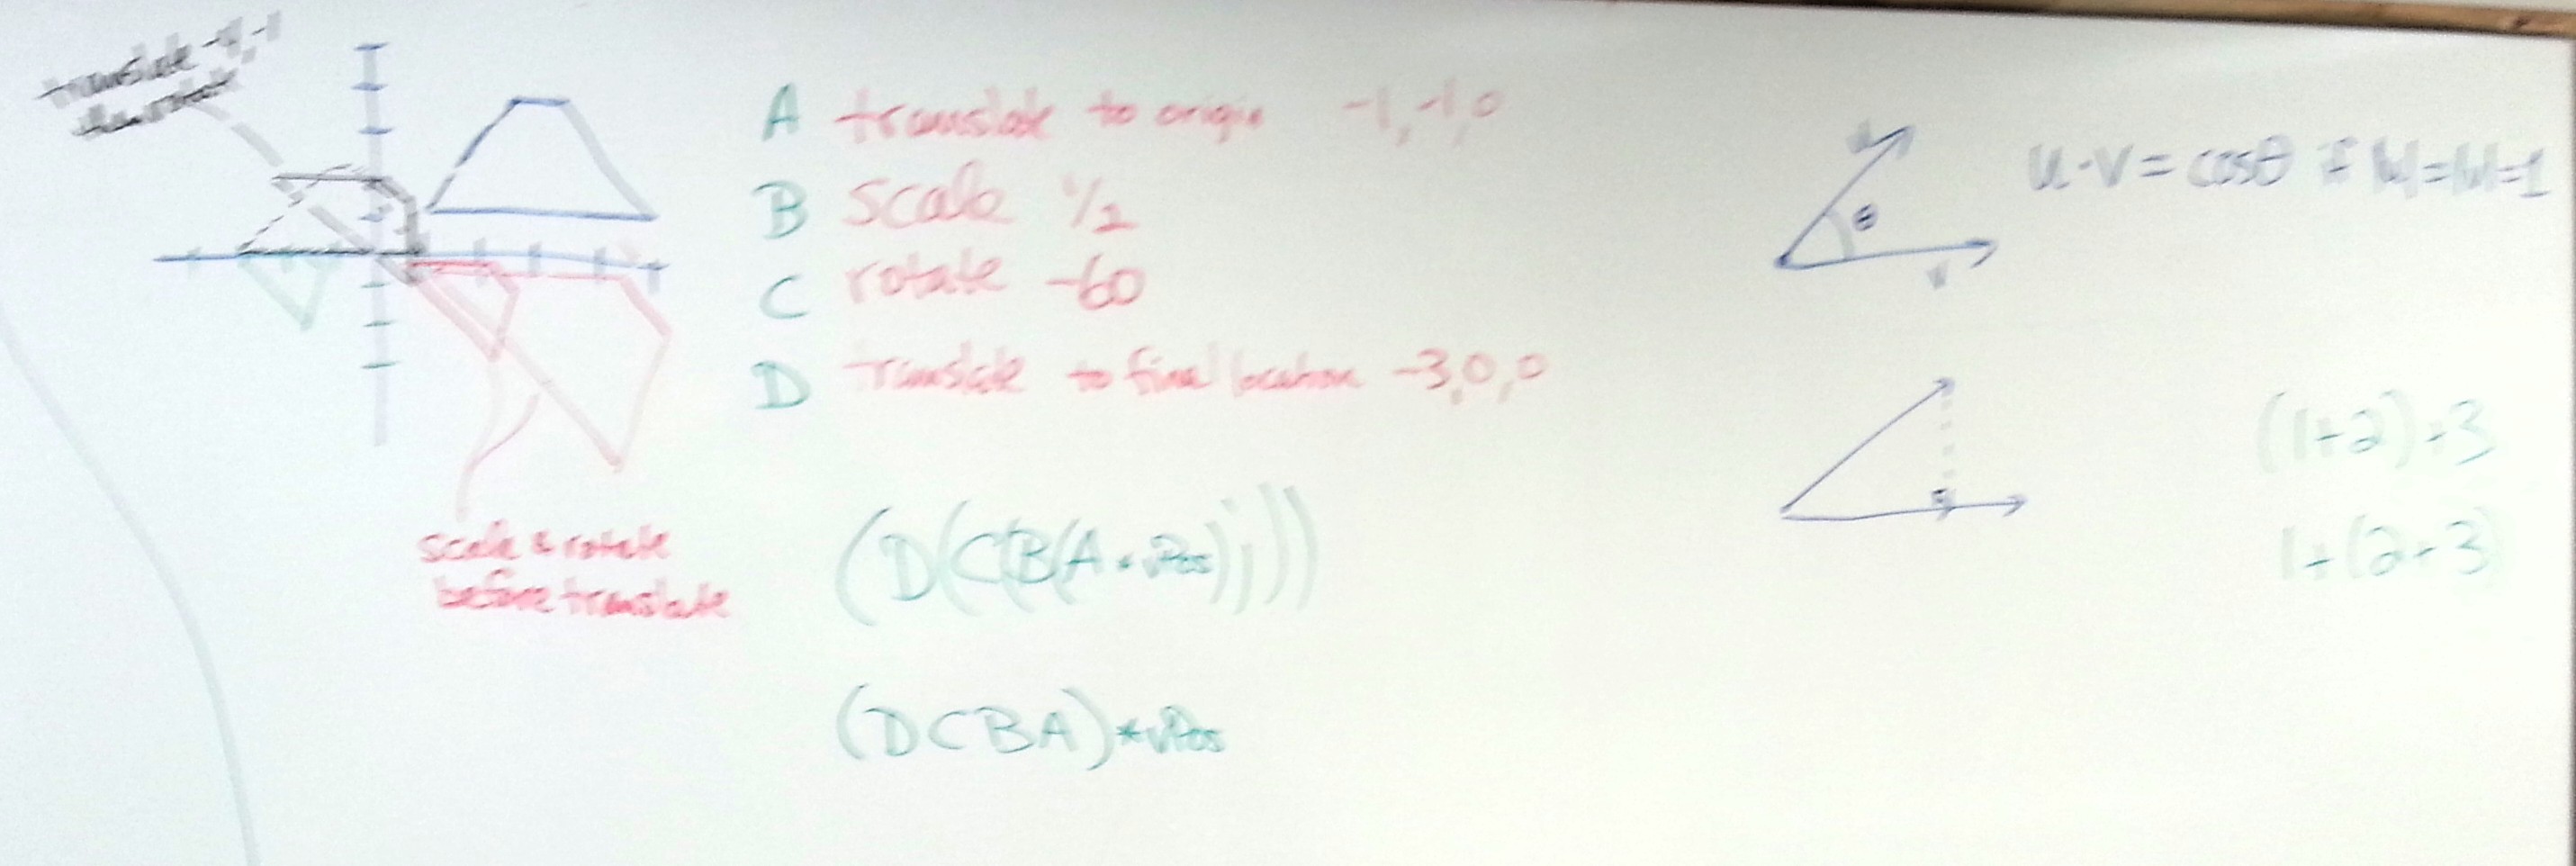 translate -4,-1
then rotate
A translate to origin -1,-1,0
B scale 1/2
C rotate -60
D translate to final location -3,0,0
scale & rotate
before translate
(D(C(B(A * vPos))))
(DCBA)*vPos
u
θ
v
u·v = cosθ if |u|=|v|=1
(1+2)+3
1+(2+3)